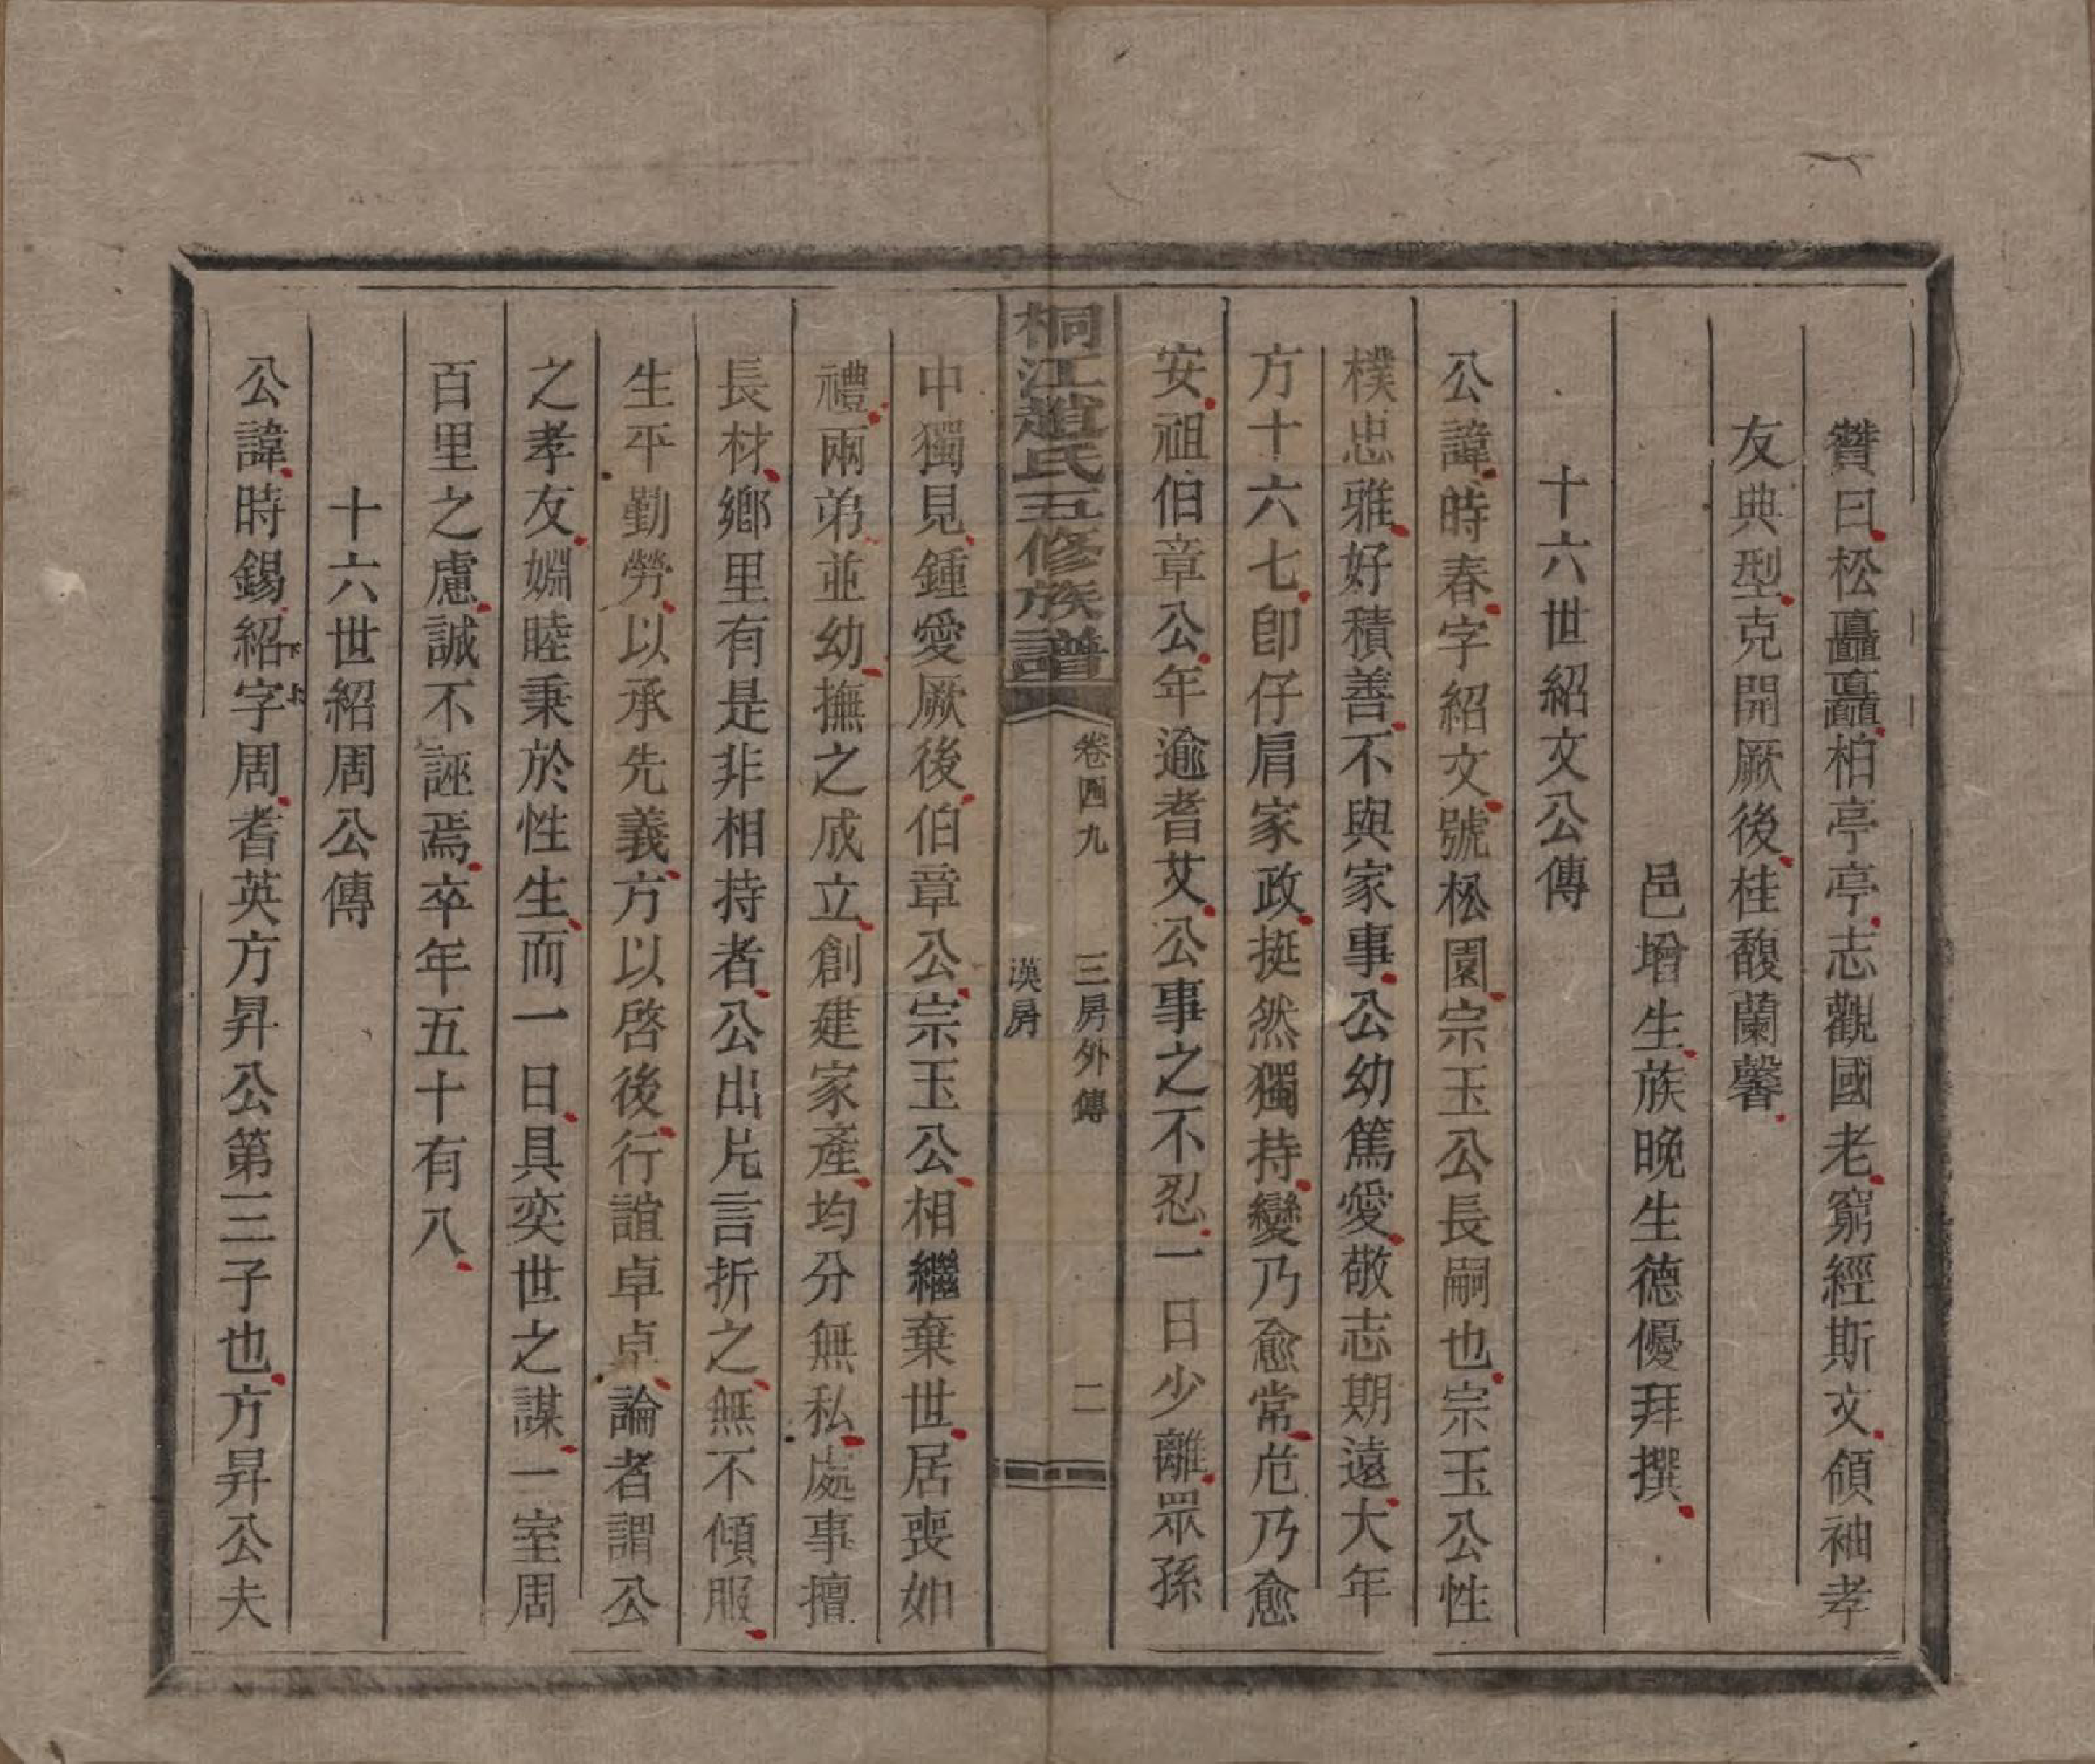 贊曰松矗矗柏亭亭志觀國老窮經斯文領袖孝
友典型克開厥後桂馥蘭馨
邑增生族晚生德優拜撰
十六世紹文公傳
公諱時春字紹文號松園宗玉公長嗣也宗玉公性
樸忠雅好積善不與家事公幼篤愛敬志期遠大年
方十六七卽仔肩家政挺然獨持變乃愈常危乃愈
安祖伯章公年逾耆艾公事之不忍一日少離眾孫
桐江趙氏五修族譜
卷四九 三房外傳 二
漢房
中獨見鍾愛厥後伯章公宗玉公相繼棄世居喪如
禮兩弟並幼撫之成立創建家產均分無私處事擅
長材鄉里有是非相持者公出片言折之無不傾服
生平勤勞以承先義方以啓後行誼卓卓論者謂公
之孝友婣睦秉於性生而一日具奕世之謀一室周
百里之慮誠不誣焉卒年五十有八
十六世紹周公傳
公諱時錫紹字周耆英方昇公第三子也方昇公夫